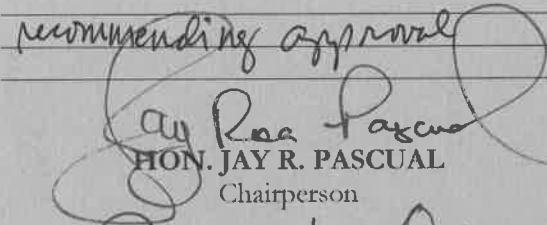 recommending approval
Jay Rea Pascual
HON. JAY R. PASCUAL
Chairperson